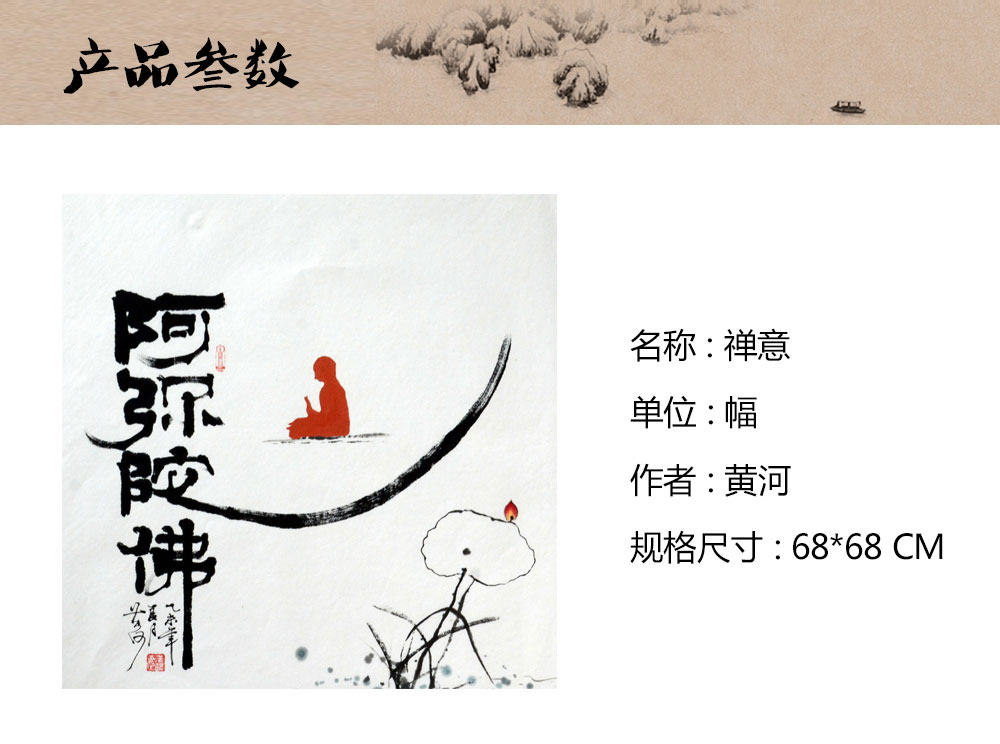 产品叁数
阿弥陀佛
乙未年
名称 : 禅意
单位 : 幅
作者 : 黄河
规格尺寸 : 68*68 CM